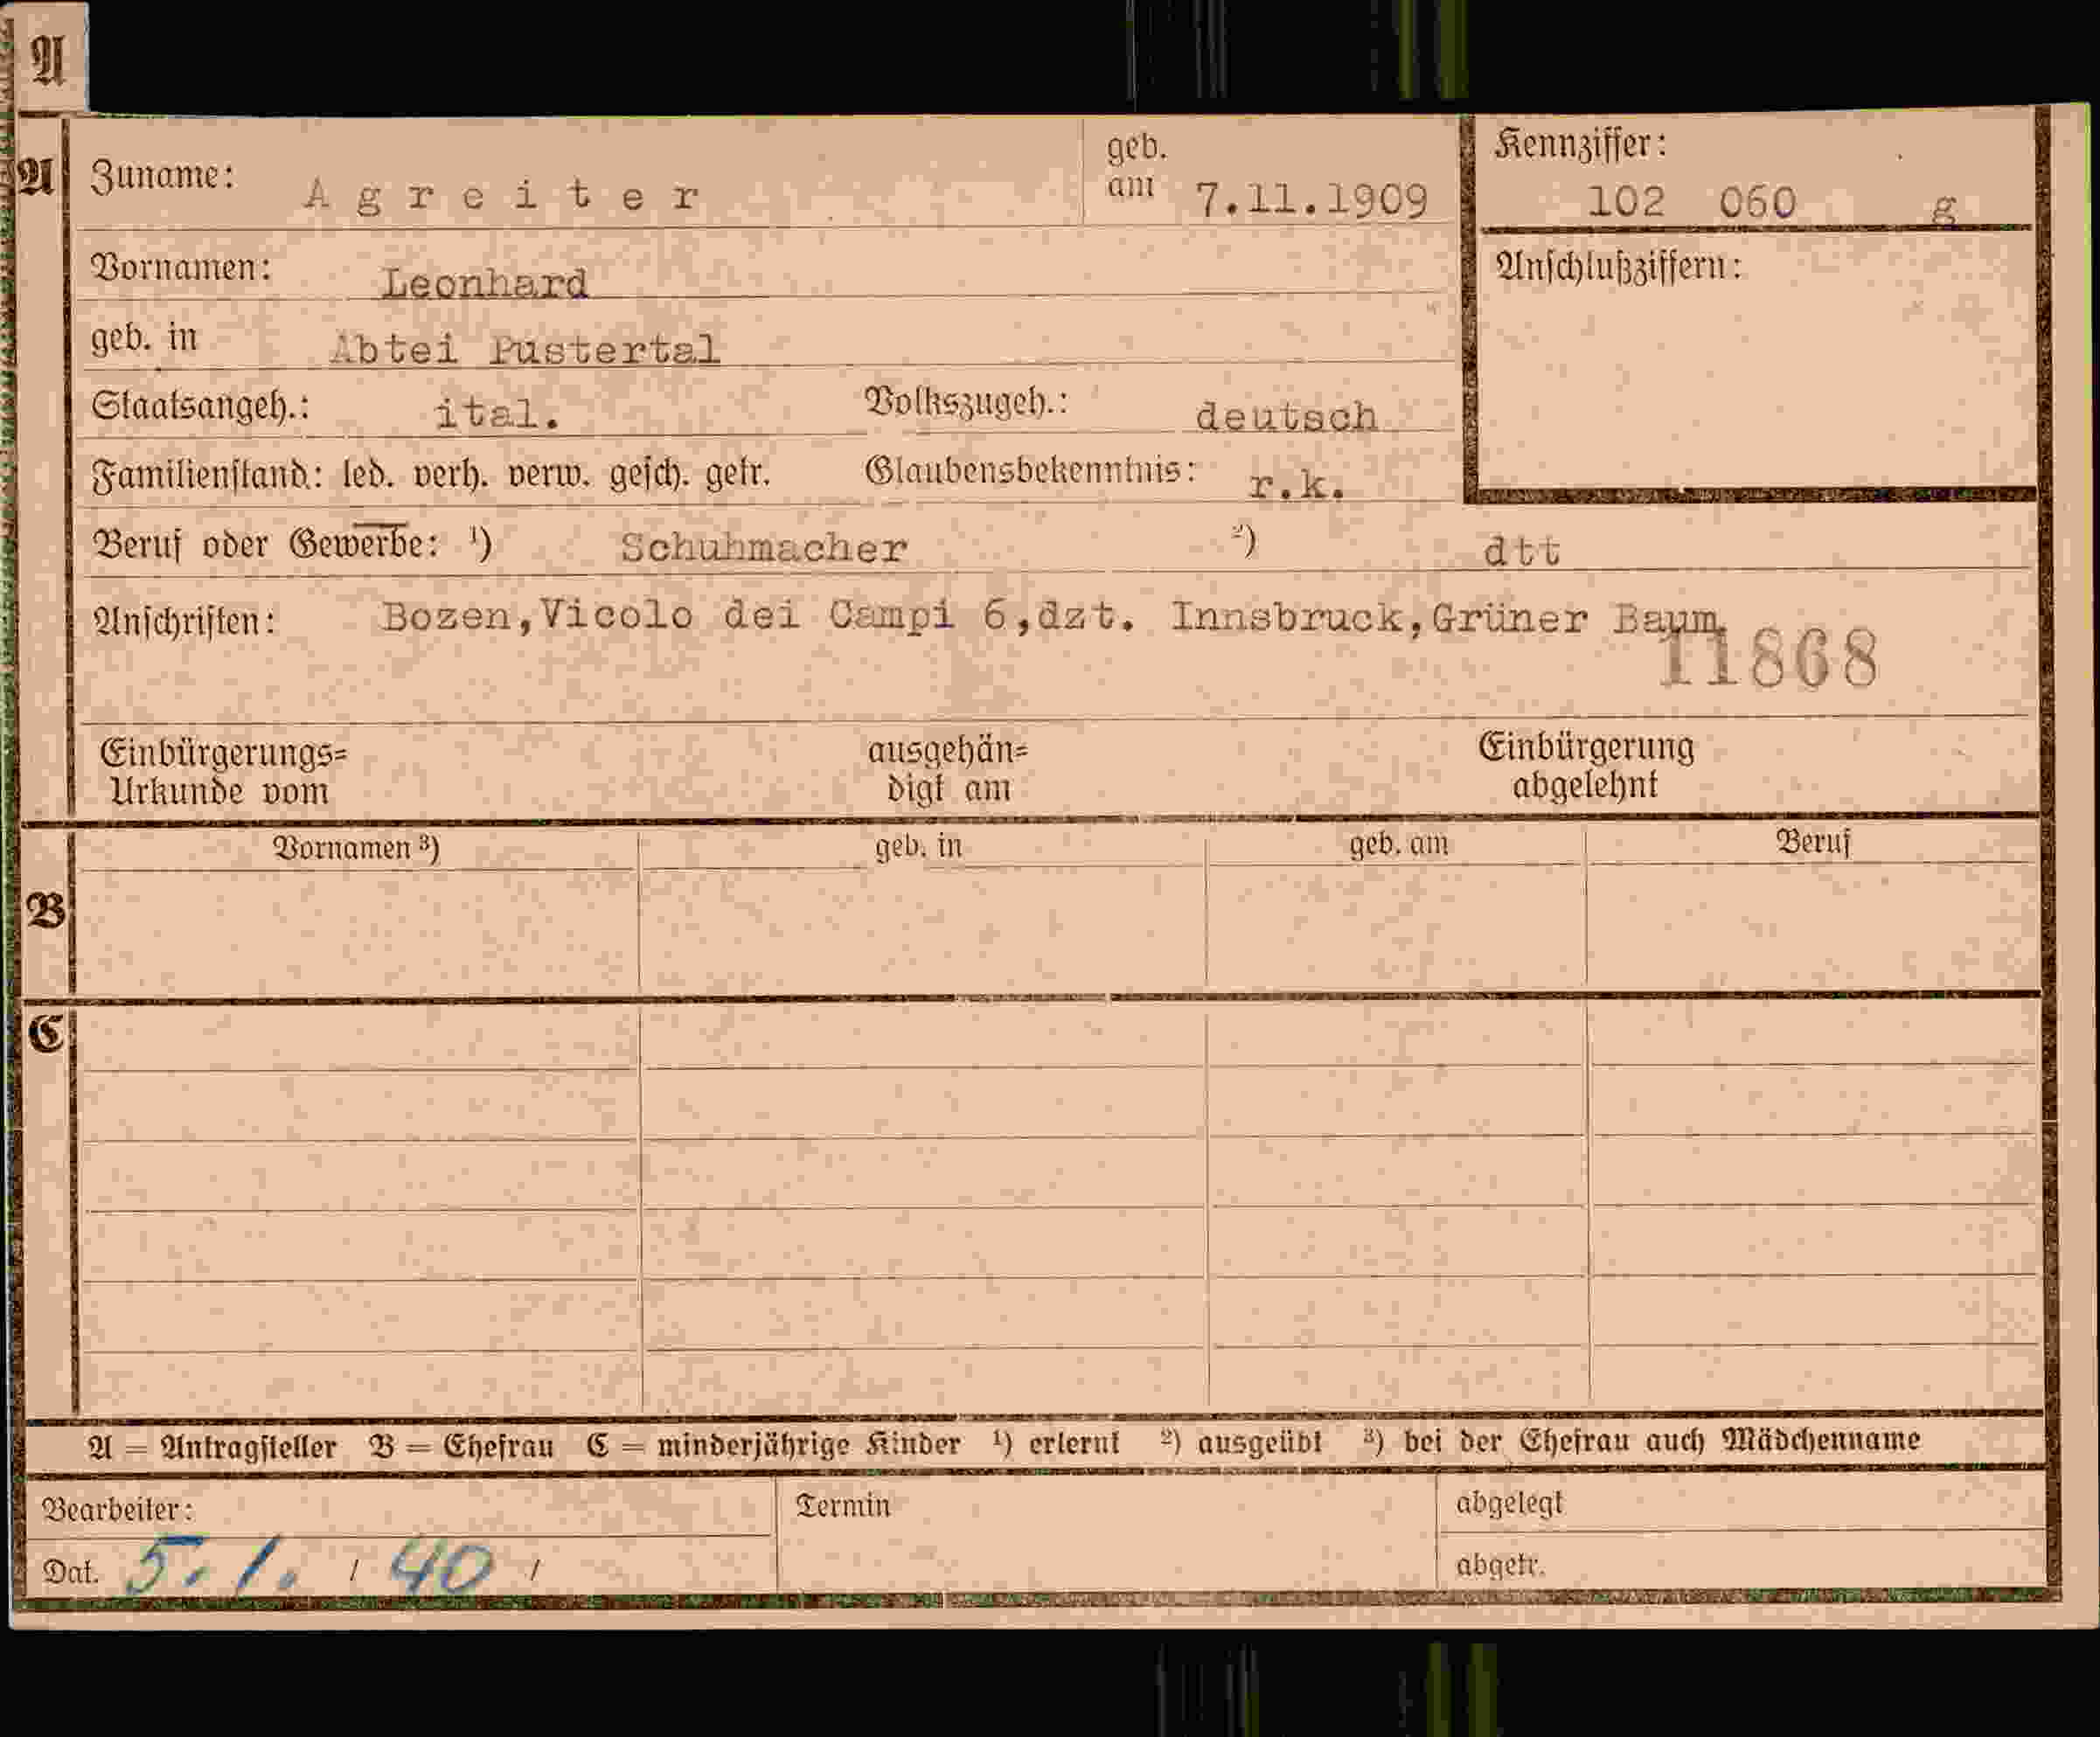 A
A
Zuname: Agreiter
geb. am 7.11.1909
Kennziffer:
102 060 g
Vornamen: Leonhard
Anschlußziffern:
geb. in Abtei Pustertal
Staatsangeh.: ital. Volkszugeh.: deutsch
Familienstand: led. verh. verw. gesch. getr. Glaubensbekenntnis: r.k.
Beruf oder Gewerbe: 1) Schuhmacher 2) dtt
Anschriften: Bozen,Vicolo dei Campi 6,dzt. Innsbruck,Grüner Baum
11868
Einbürgerungs= ausgehän= Einbürgerung
Urkunde vom digt am abgelehnt
Vornamen 3) geb. in geb. am Beruf
B
C
A = Antragsteller B = Ehefrau C = minderjährige Kinder 1) erlernt 2) ausgeübt 3) bei der Ehefrau auch Mädchenname
Bearbeiter: Termin abgelegt
Dat. 5. 1. / 40 / abgetr.